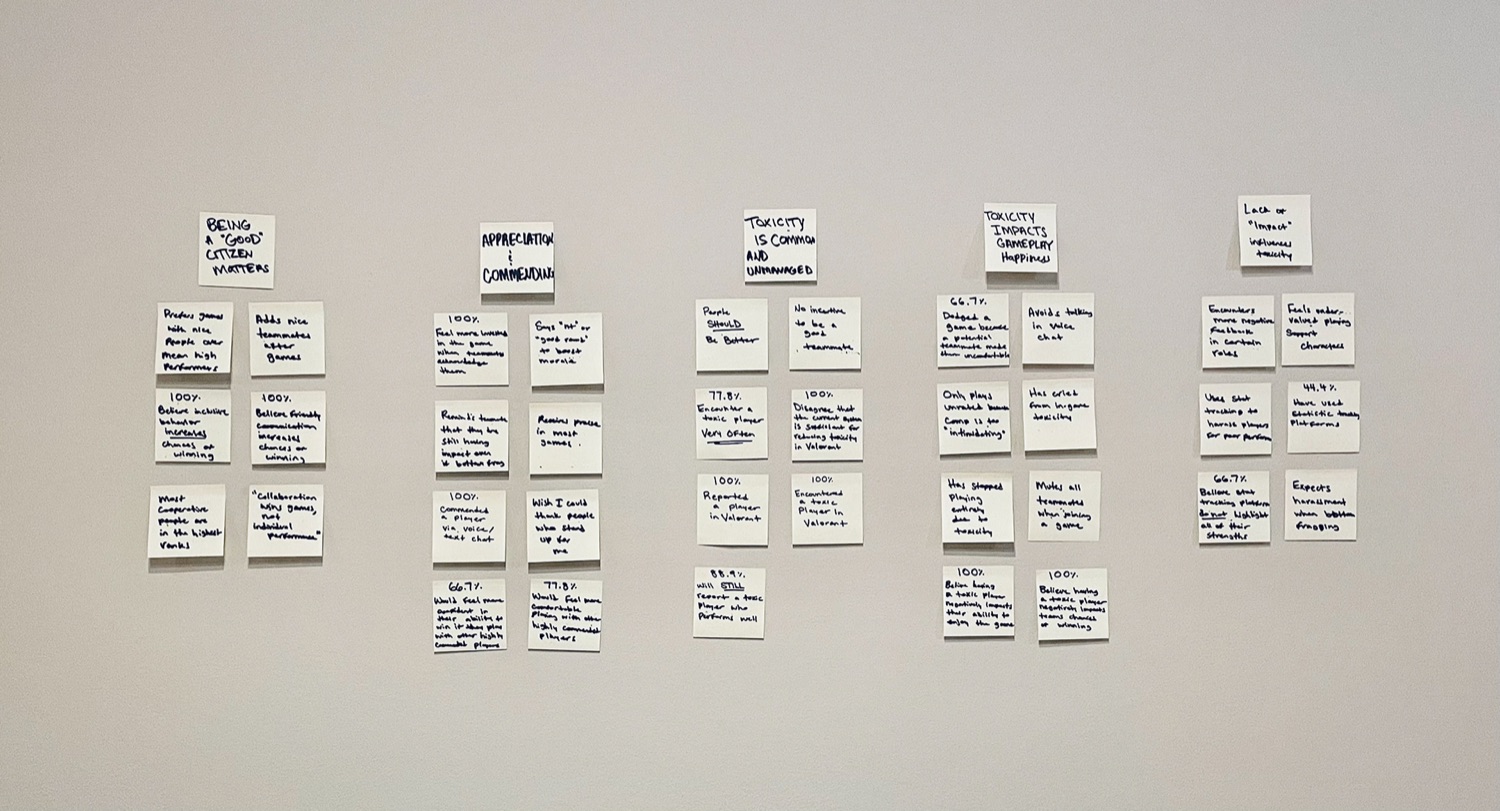 BEING
A "GOOD"
CITIZEN
MATTERS
Prefers games
with nice
people over
mean high
Performers
Adds nice
teammates
after
games
100%
Believe inclusive
behavior
increases
chances of
winning
100%
Believe friendly
communication
increases
chances of
winning
Most
Cooperative
people are
in the highest
ranks
"Collaboration
wins games,
not
individual
performance"
APPRECIATION
&
COMMENDING
100%
Feel more invested
in the game
when teammates
acknowledge
them
Says "nt" or
"good
to boost
morale
teammates
that they're
still having
impact even
if bottom frag
Receives praise
in most
games.
100%
commended
a player
via voice/
text chat
Wish I could
thank people
who stand
up for
me
66.7%
Would feel more
confident in
their ability to
win if they play
with other highly
commended players
77.8%
Would feel more
comfortable
playing with other
highly commended
players
TOXICITY
IS COMMON
AND
UNMANAGED
People
SHOULD
Be Better
No incentive
to be a
good
teammate.
77.8%
Encounter a
toxic player
Very Often
100%
Disagree that
the current system
is sufficient for
reducing toxicity
in Valorant
100%
Reported
a player
in Valorant
100%
Encountered
a toxic
Player in
Valorant
88.9%
Will STILL
report a toxic
player who
performs well
TOXICITY
IMPACTS
GAMEPLAY
Happiness
66.7%
Dodged a
game because
a potential
teammate made
them uncomfortable
Avoids talking
in voice
chat
Only plays
unrated because
Comp is too
"intimidating"
Has cried
from in-game
toxicity
Has stopped
playing
entirely
due to
toxicity
Mutes all
teammates
when joining
a game
100%
Believe having
a toxic player
negatively impacts
their ability to
enjoy the game
100%
Believe having
a toxic player
negatively impacts
teams chances
of winning
Lack of
"Impact"
influences
toxicity
Encounters
more negative
feedback
in certain
roles
Feels under-
valued playing
Support
characters
Uses stat
tracking to
harass players
for poor perform
44.4%
Have used
Statistic tracking
platforms
66.7%
Believe stat
tracking platforms
do not highlight
all of their
strengths
Expects
harassment
when bottom
fragging